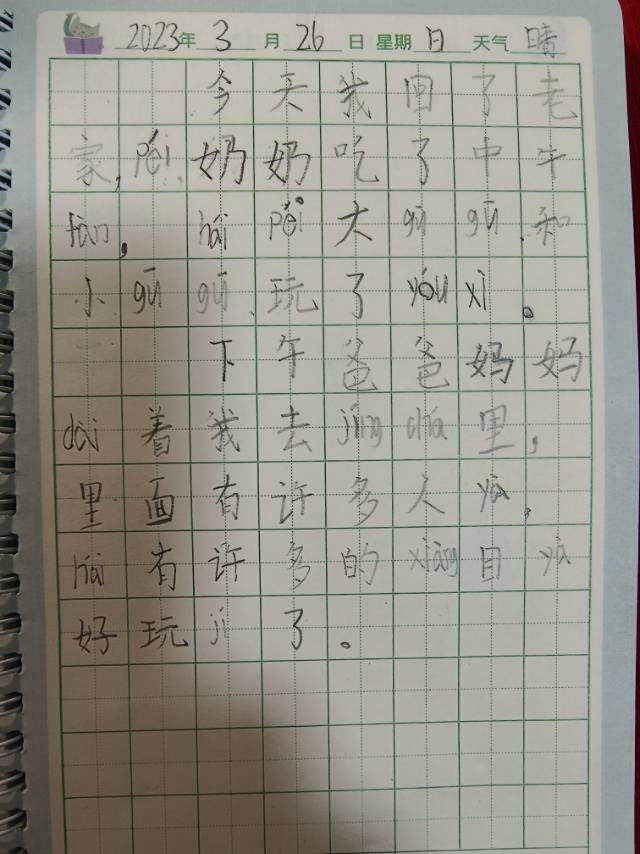 2023年3月26日 星期日 天气晴
今天我回了老
家,péi奶奶吃了中午
fàn,hái péi大gū gū、和
小gū gū、玩了yóu xì。
下午爸爸妈妈
dài着我去jǐng chá里,
里面有许多人yā,
hái有许多的xiàng目yā
好玩jí了。